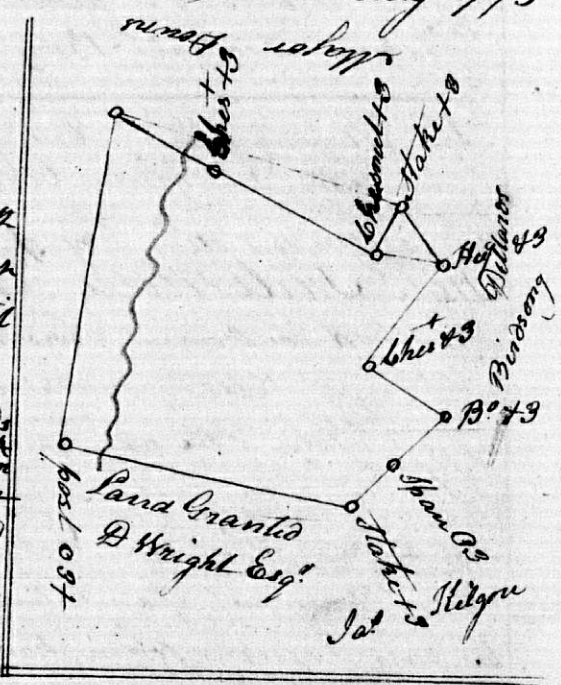 Major
Downs
Ches+ +3
Chesnut +3
Stake +3
Ches+ +3
Birdsong
Bo +3
Span O3
Stake +3
Jas Kilgore
Land Granted
D Wright Esqr
post O3+